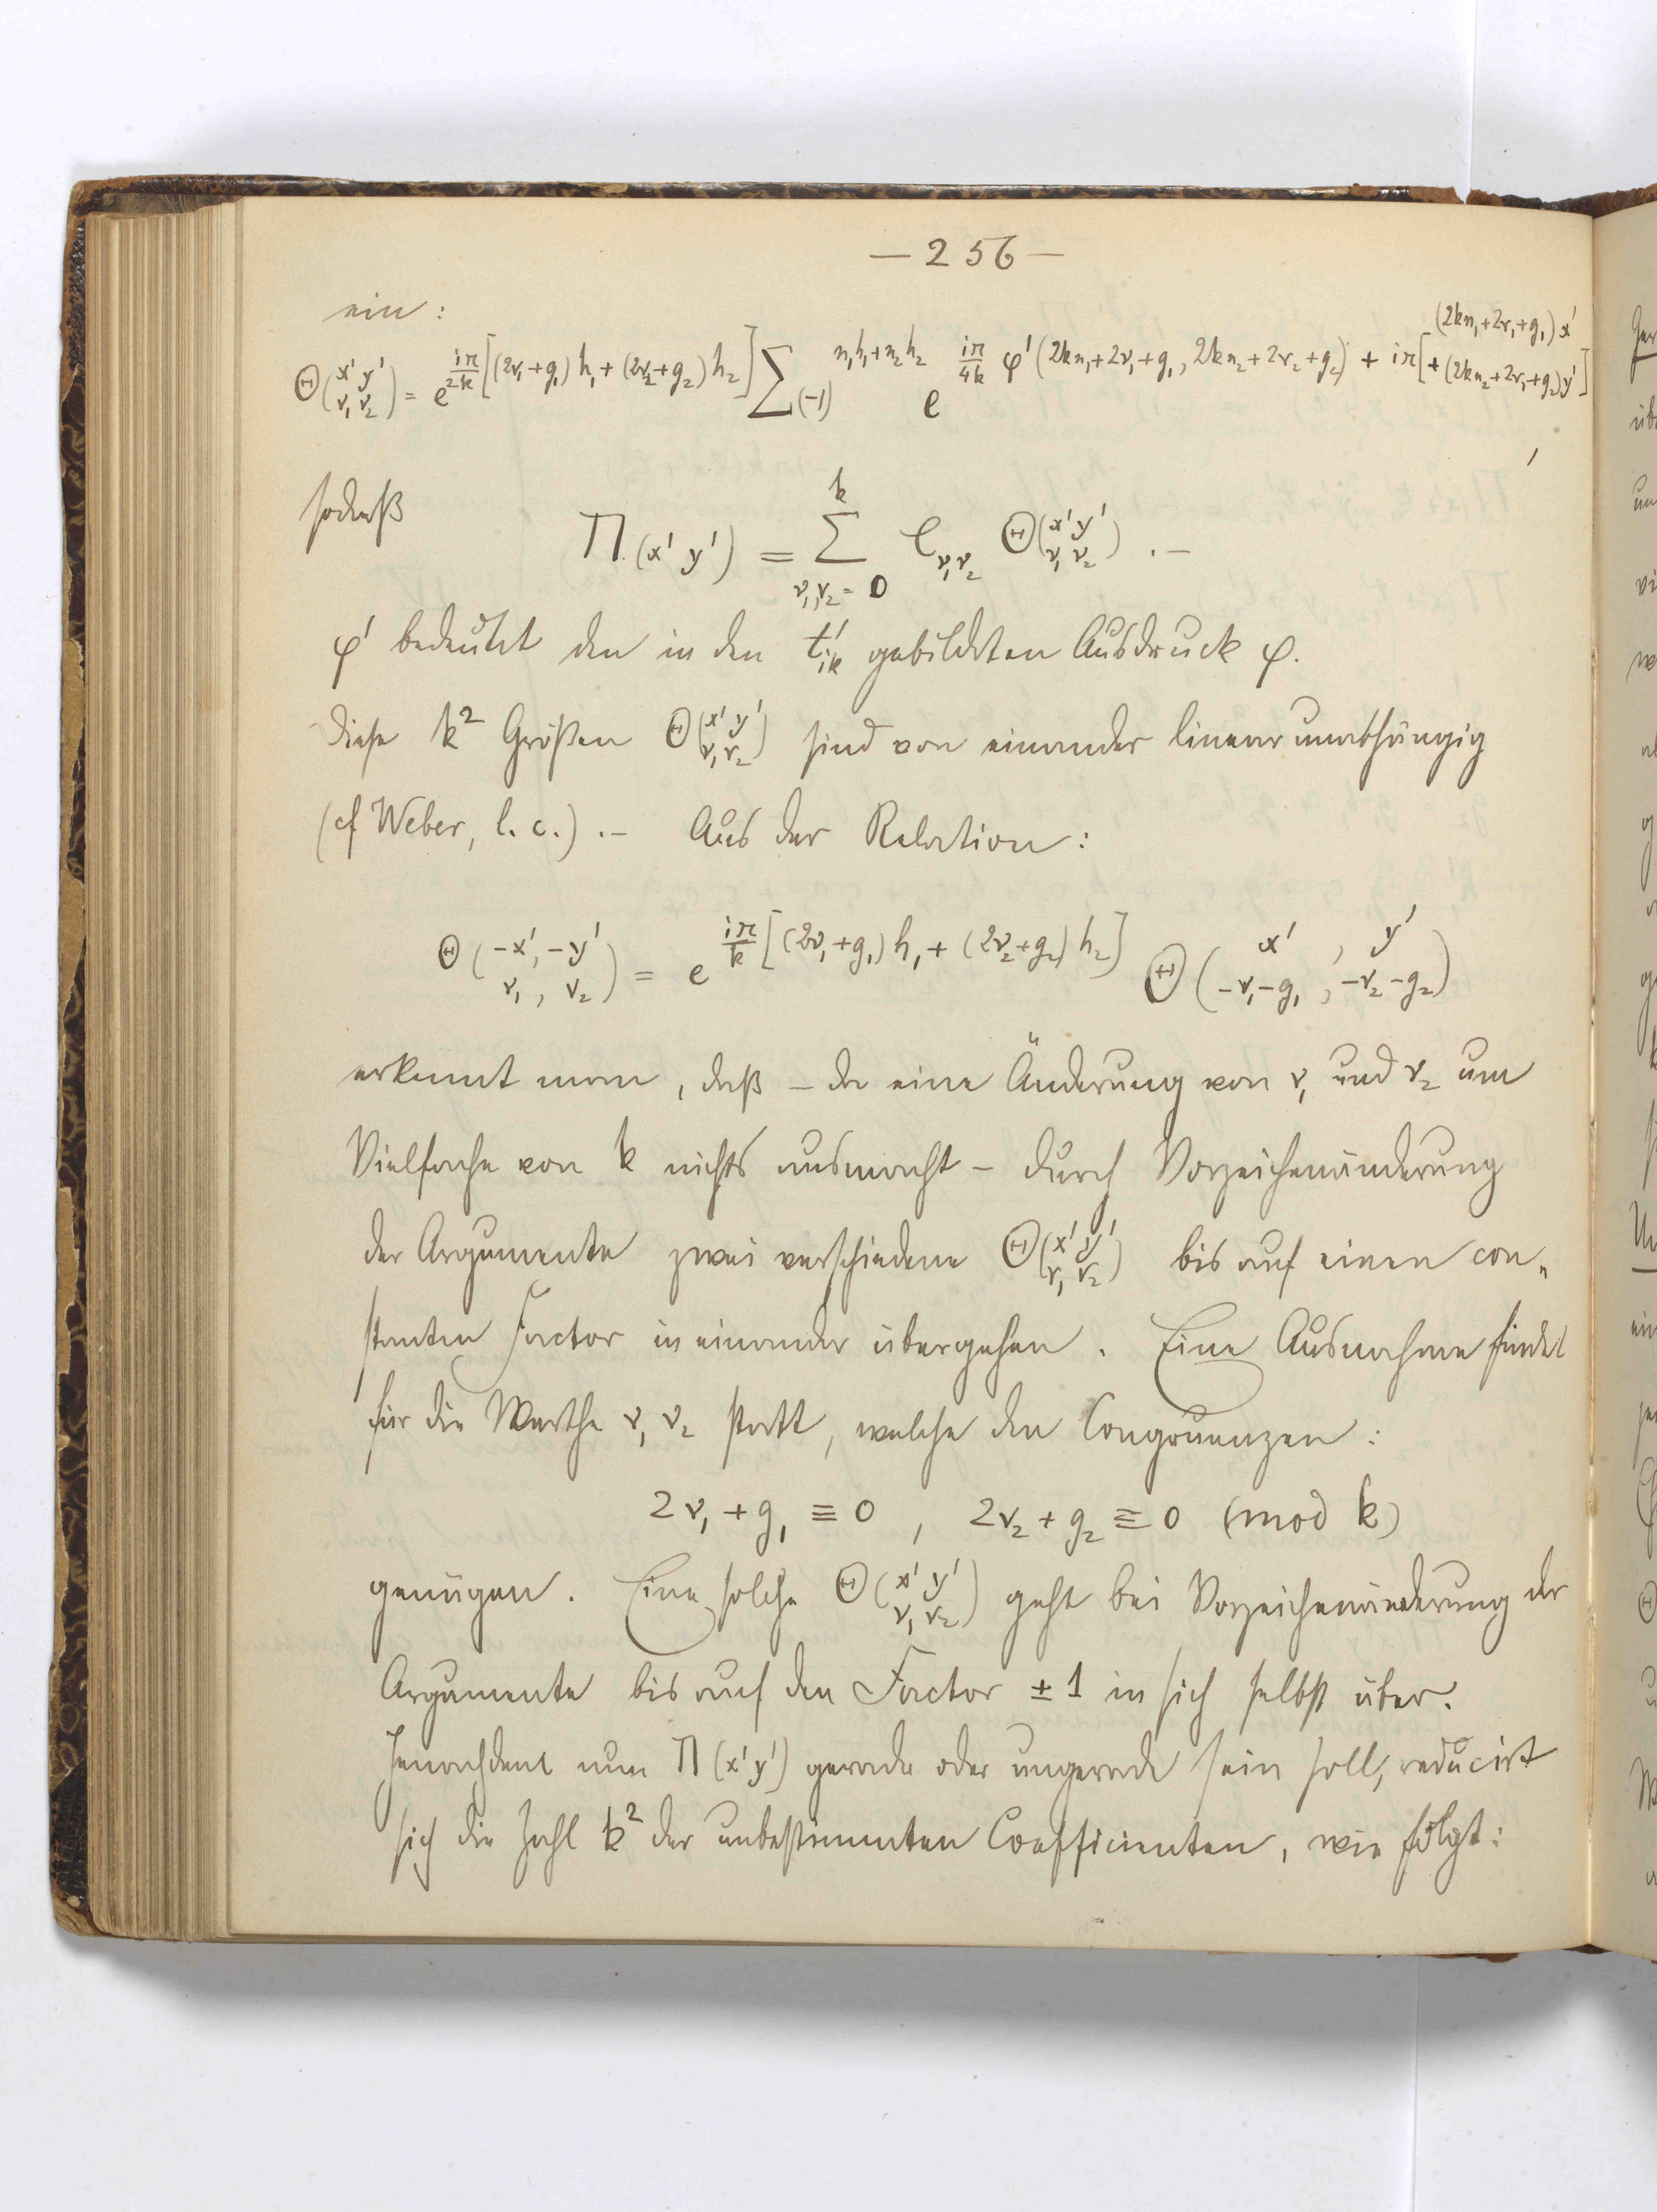 — 256 —
ein :
Θ(x' y' ν₁ ν₂) = e^{iπ/2k [(2ν₁+g₁)h₁+(2ν₂+g₂)h₂]} ∑ (-1)^{n₁h₁+n₂h₂} e^{iπ/4k φ'(2kn₁+2ν₁+g₁, 2kn₂+2ν₂+g₂) + iπ[(2kn₁+2ν₁+g₁)x' + (2kn₂+2ν₂+g₂)y']} ,
sodaß
Π(x' y') = ∑_{ν₁,ν₂=0}^{k} C_{ν₁ν₂} Θ(x' y' ν₁ ν₂) . —
φ' bedeutet den in den t'ᵢₖ gebildeten Ausdruck φ.
Diese k² Größen Θ(x' y' ν₁ ν₂) sind von einander linear unabhängig
(cf Weber, l. c.) . — Aus der Relation :
Θ(-x', -y' ν₁, ν₂) = e^{iπ/k [(2ν₁+g₁)h₁+(2ν₂+g₂)h₂]} Θ(x' , y' -ν₁-g₁ , -ν₂-g₂)
erkennt man, daß — da eine Änderung von ν₁ und ν₂ um
Vielfache von k nichts ausmacht — durch Vorzeichenänderung
der Argumente zwei verschiedene Θ(x' y' ν₁ ν₂) bis auf einen con-
stanten Factor in einander übergehen . Eine Ausnahme findet
für die Werthe ν₁ ν₂ statt, welche den Congruenzen :
2ν₁ + g₁ ≡ 0 , 2ν₂ + g₂ ≡ 0 (mod k)
genügen . Eine solche Θ(x' y' ν₁ ν₂) geht bei Vorzeichenänderung der
Argumente bis auf den Factor ± 1 in sich selbst über.
Jenachdem nun Π(x' y') gerade oder ungerade sein soll, reducirt
sich die Zahl k² der unbestimmten Coefficienten, wie folgt :